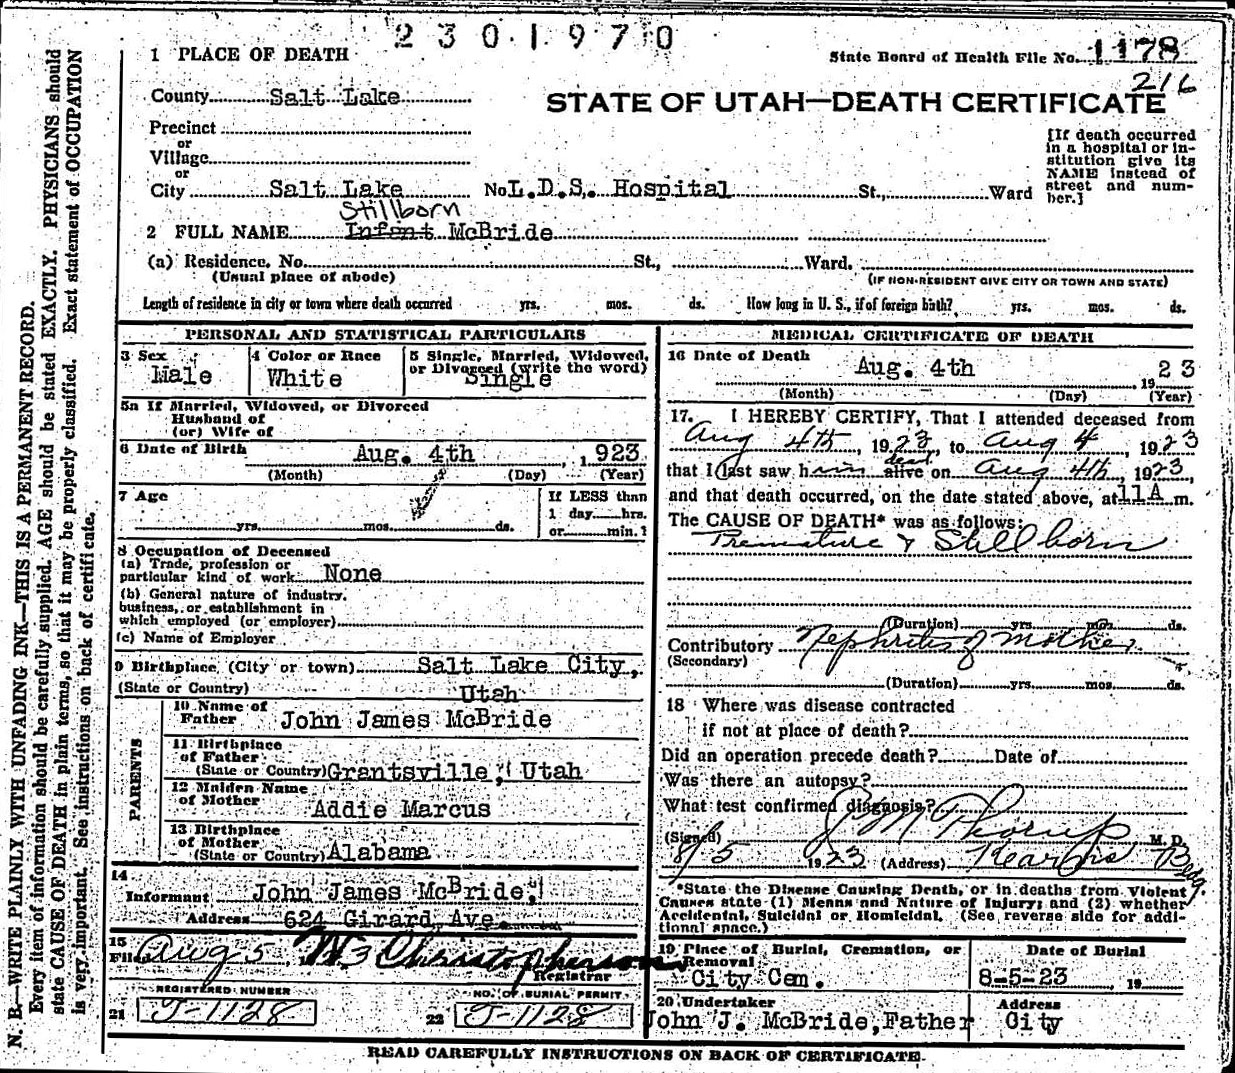 2301970
1 PLACE OF DEATH
State Board of Health File No. 1178
216
County Salt Lake
STATE OF UTAH—DEATH CERTIFICATE
Precinct
or
Village
or
City Salt Lake No. L.D.S. Hospital St., Ward
[If death occurred
in a hospital or in-
stitution give its
NAME instead of
street and num-
ber.]
Stillborn
2 FULL NAME Infant McBride
(a) Residence. No. St., Ward.
(Usual place of abode)
(IF NON-RESIDENT GIVE CITY OR TOWN AND STATE)
Length of residence in city or town where death occurred yrs. mos. ds. How long in U. S., if of foreign birth? yrs. mos. ds.
PERSONAL AND STATISTICAL PARTICULARS
3 Sex
Male
4 Color or Race
White
5 Single, Married, Widowed,
or Divorced (write the word)
Single
5a If Married, Widowed, or Divorced
Husband of
(or) Wife of
6 Date of Birth
Aug. 4th, 1923
(Month) (Day) (Year)
7 Age
yrs. mos. ds.
If LESS than
1 day hrs.
or min.?
8 Occupation of Deceased
(a) Trade, profession or
particular kind of work None
(b) General nature of industry,
business, or establishment in
which employed (or employer)
(c) Name of Employer
9 Birthplace (City or town) Salt Lake City,
(State or Country) Utah
PARENTS
10 Name of
Father John James McBride
11 Birthplace
of Father
(State or Country) Grantsville, Utah
12 Maiden Name
of Mother Addie Marcus
13 Birthplace
of Mother
(State or Country) Alabama
14
Informant John James McBride,
Address 624 Girard Ave
15
Filed Aug 5, W3 Christopherson
Registrar
REGISTERED NUMBER
21 J-1128
NO. OF BURIAL PERMIT
22 J-1128
MEDICAL CERTIFICATE OF DEATH
16 Date of Death
Aug. 4th 1923
(Month) (Day) (Year)
17. I HEREBY CERTIFY, That I attended deceased from
Aug 4th, 1923, to Aug 4, 1923
dead
that I last saw him alive on Aug 4th, 1923,
and that death occurred, on the date stated above, at 11 A m.
The CAUSE OF DEATH* was as follows:
Premature & Stillborn
(Duration) yrs. mos. ds.
Contributory Nephritis of mother
(Secondary)
(Duration) yrs. mos. ds.
18 Where was disease contracted
if not at place of death?
Did an operation precede death? Date of
Was there an autopsy?
What test confirmed diagnosis?
(Signed) J M Thorup M.D.
8/5 1923 (Address) Kearns Bldg.
*State the Disease Causing Death, or in deaths from Violent
Causes state (1) Means and Nature of Injury; and (2) whether
Accidental, Suicidal or Homicidal. (See reverse side for addi-
tional space.)
19 Place of Burial, Cremation, or
Removal
City Cem.
Date of Burial
8-5-23, 19
20 Undertaker
John J. McBride, Father
Address
City
READ CAREFULLY INSTRUCTIONS ON BACK OF CERTIFICATE.
N. B.—WRITE PLAINLY WITH UNFADING INK—THIS IS A PERMANENT RECORD.
Every item of information should be carefully supplied. AGE should be stated EXACTLY. PHYSICIANS should
state CAUSE OF DEATH in plain terms, so that it may be properly classified. Exact statement of OCCUPATION
is very important. See instructions on back of certificate.